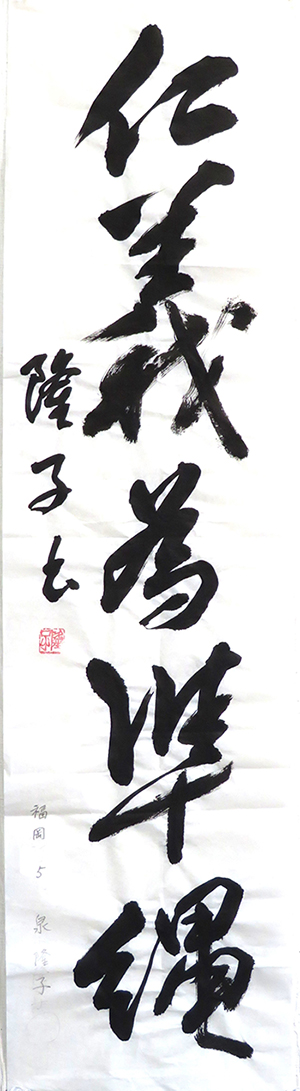 仁義為準縄
隆子書
福岡 5 泉隆子